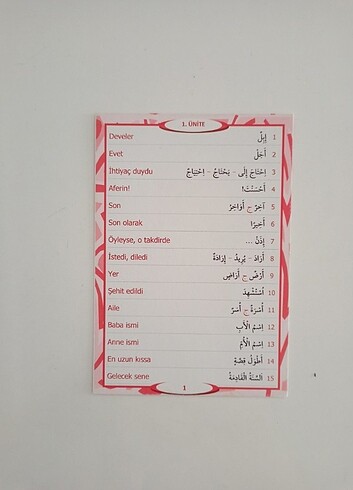 1. ÜNİTE
Develer إِبِلٌ 1
Evet أَجَلْ 2
İhtiyaç duydu اِحْتَاجَ إِلَى - يَحْتَاجُ - اِحْتِيَاجٌ 3
Aferin! أَحْسَنْتَ! 4
Son آخِرٌ ج أَوَاخِرُ 5
Son olarak أَخِيرًا 6
Öyleyse, o takdirde إِذَنْ ... 7
İstedi, diledi أَرَادَ - يُرِيدُ - إِرَادَةٌ 8
Yer أَرْضٌ ج أَرَاضٍ 9
Şehit edildi اُسْتُشْهِدَ 10
Aile أُسْرَةٌ ج أُسَرٌ 11
Baba ismi اِسْمُ الْأَبِ 12
Anne ismi اِسْمُ الْأُمِّ 13
En uzun kıssa أَطْوَلُ قِصَّةٍ 14
Gelecek sene اَلسَّنَةُ الْقَادِمَةُ 15
1